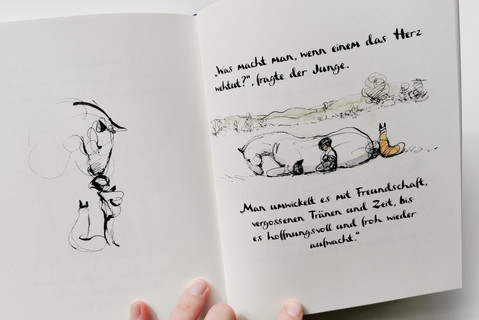 „Was macht man, wenn einem das Herz
wehtut?“, fragte der Junge.
„Man umwickelt es mit Freundschaft,
vergossenen Tränen und Zeit, bis
es hoffnungsvoll und froh wieder
aufwacht.“